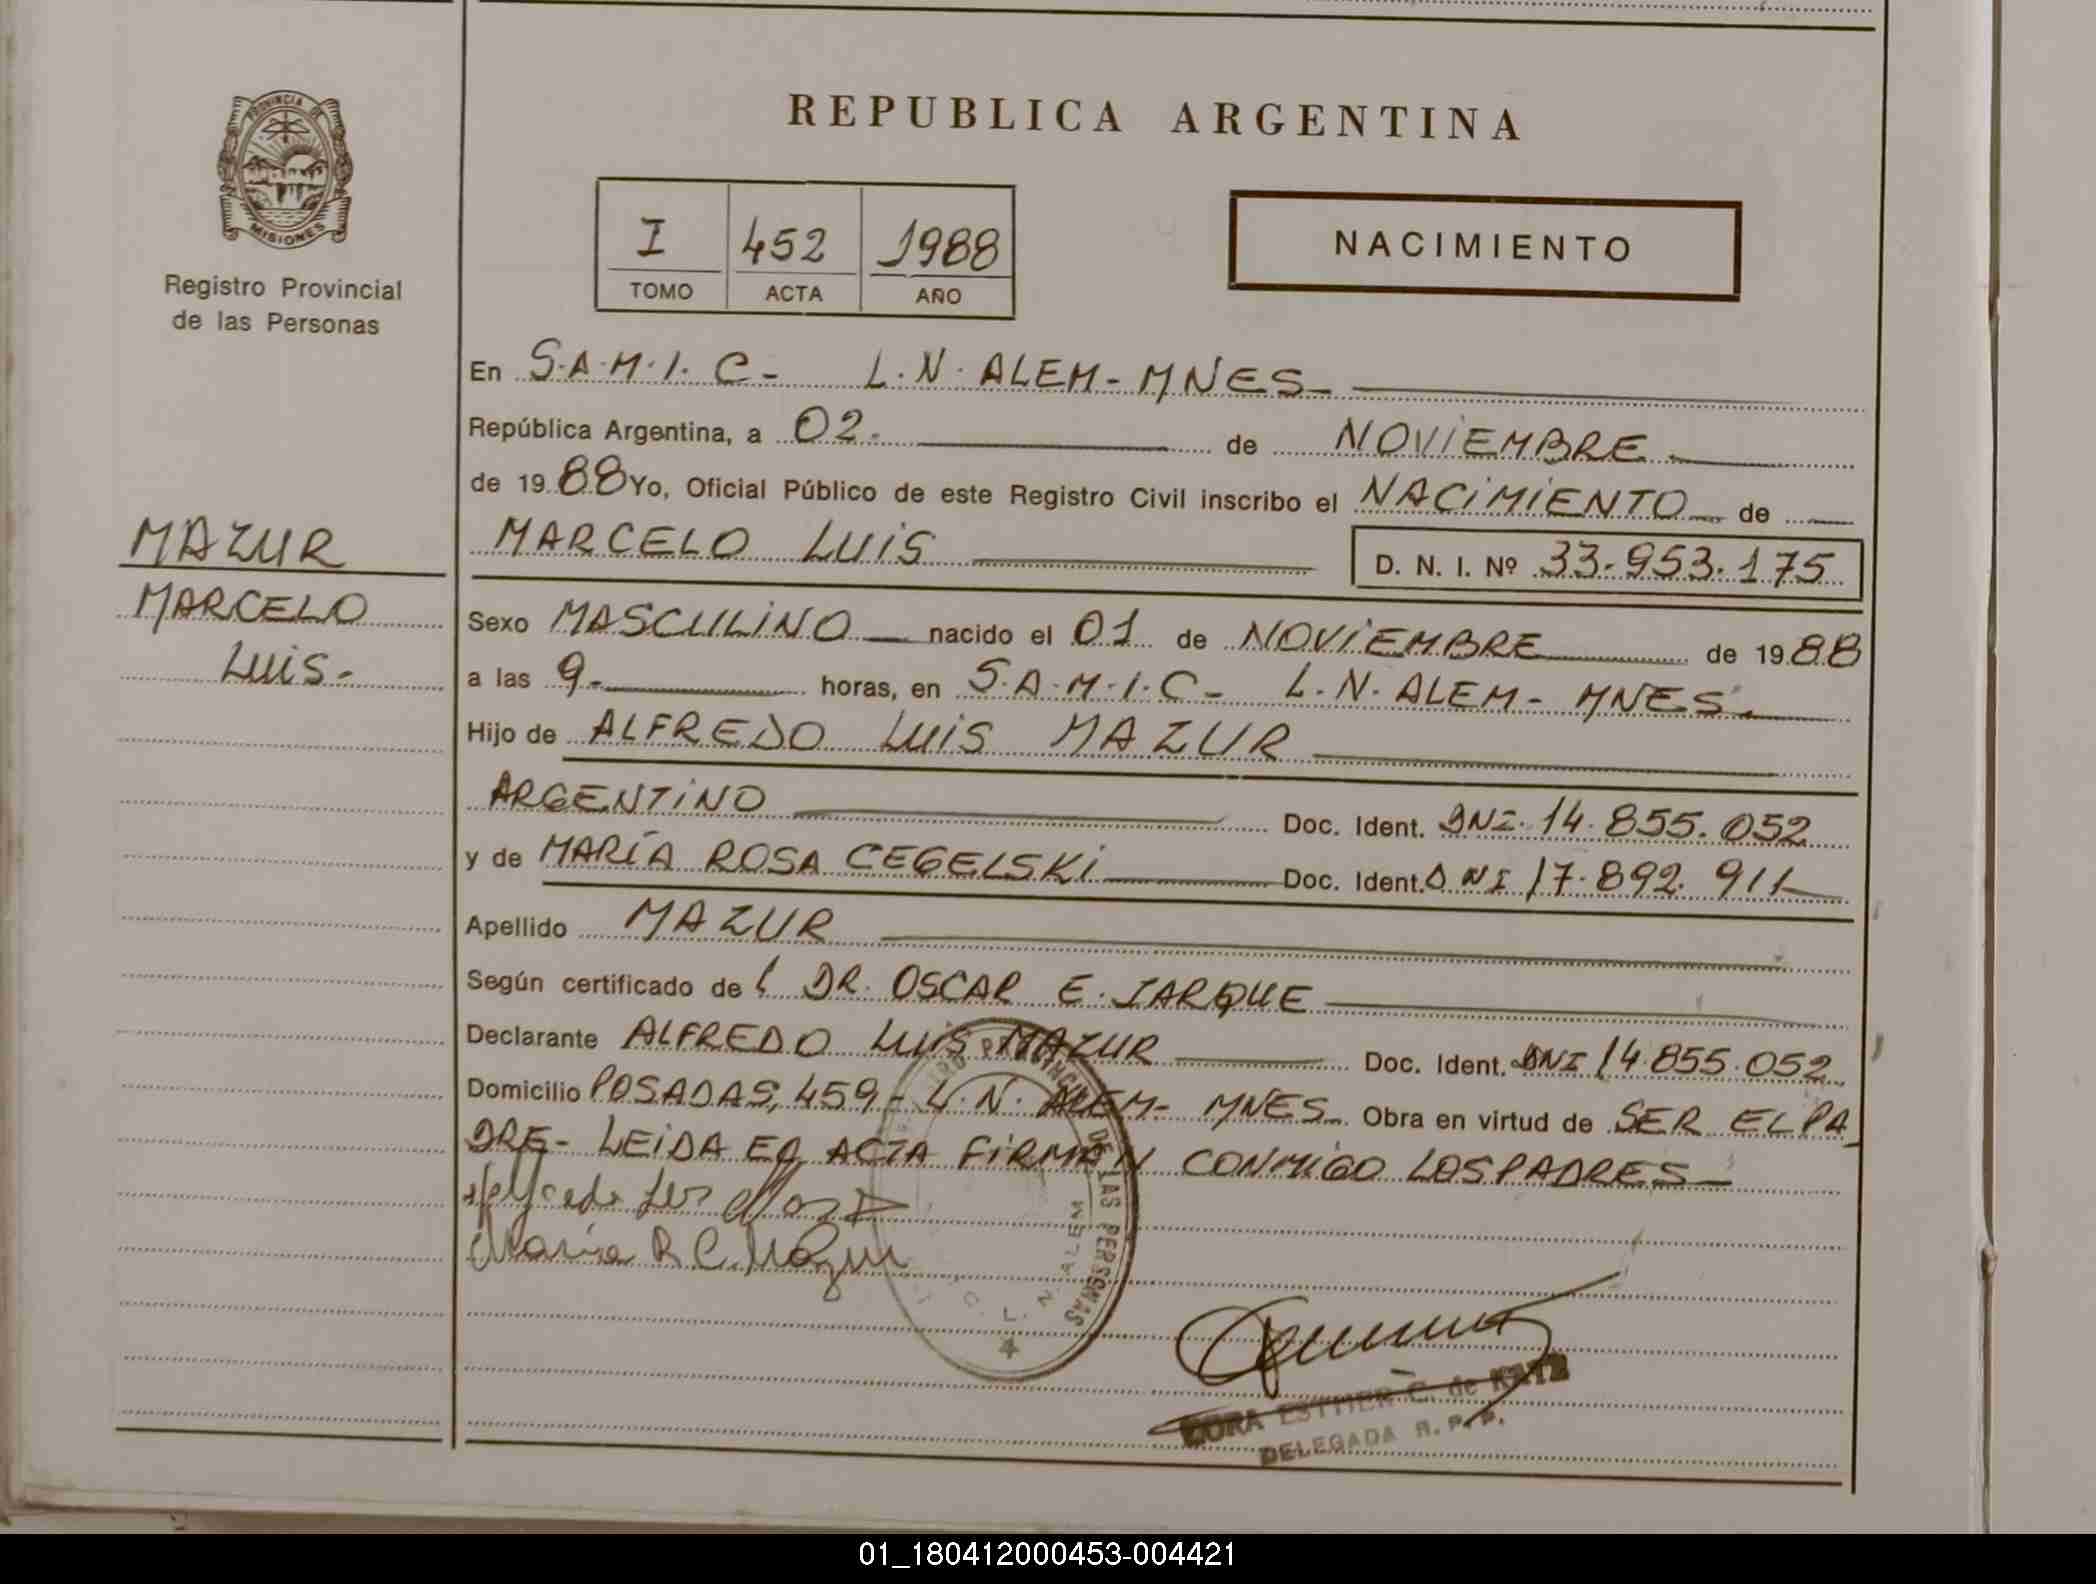 REPUBLICA ARGENTINA
PROVINCIA DE
MISIONES
Registro Provincial
de las Personas
I 452 1988
TOMO ACTA AÑO
NACIMIENTO
En S.A.M.I.C- L.N. ALEM- MNES-
República Argentina, a 02. de NOVIEMBRE
de 1988 Yo, Oficial Público de este Registro Civil inscribo el NACIMIENTO de
MARCELO LUIS D. N. I. Nº 33.953.175
MAZUR
MARCELO
LUIS-
Sexo MASCULINO nacido el 01 de NOVIEMBRE de 1988
a las 9- horas, en S.A.M.I.C- L.N. ALEM- MNES.
Hijo de ALFREDO LUIS MAZUR
ARGENTINO Doc. Ident. DNI. 14.855.052
y de MARÍA ROSA CEGELSKI Doc. Ident. DNI 17.892.911
Apellido MAZUR
Según certificado de l DR. OSCAR E. IARQUE
Declarante ALFREDO LUIS MAZUR Doc. Ident. DNI 14.855.052
Domicilio POSADAS, 459- L.N. ALEM- MNES. Obra en virtud de SER EL PA
DRE- LEIDA EL ACTA FIRMAN CONMIGO LOS PADRES-
María R C. Mazur
PROVINCIAL DE LAS PERSONAS
L. N. ALEM
ESTHER C. de
DELEGADA R. P. P.
01_180412000453-004421